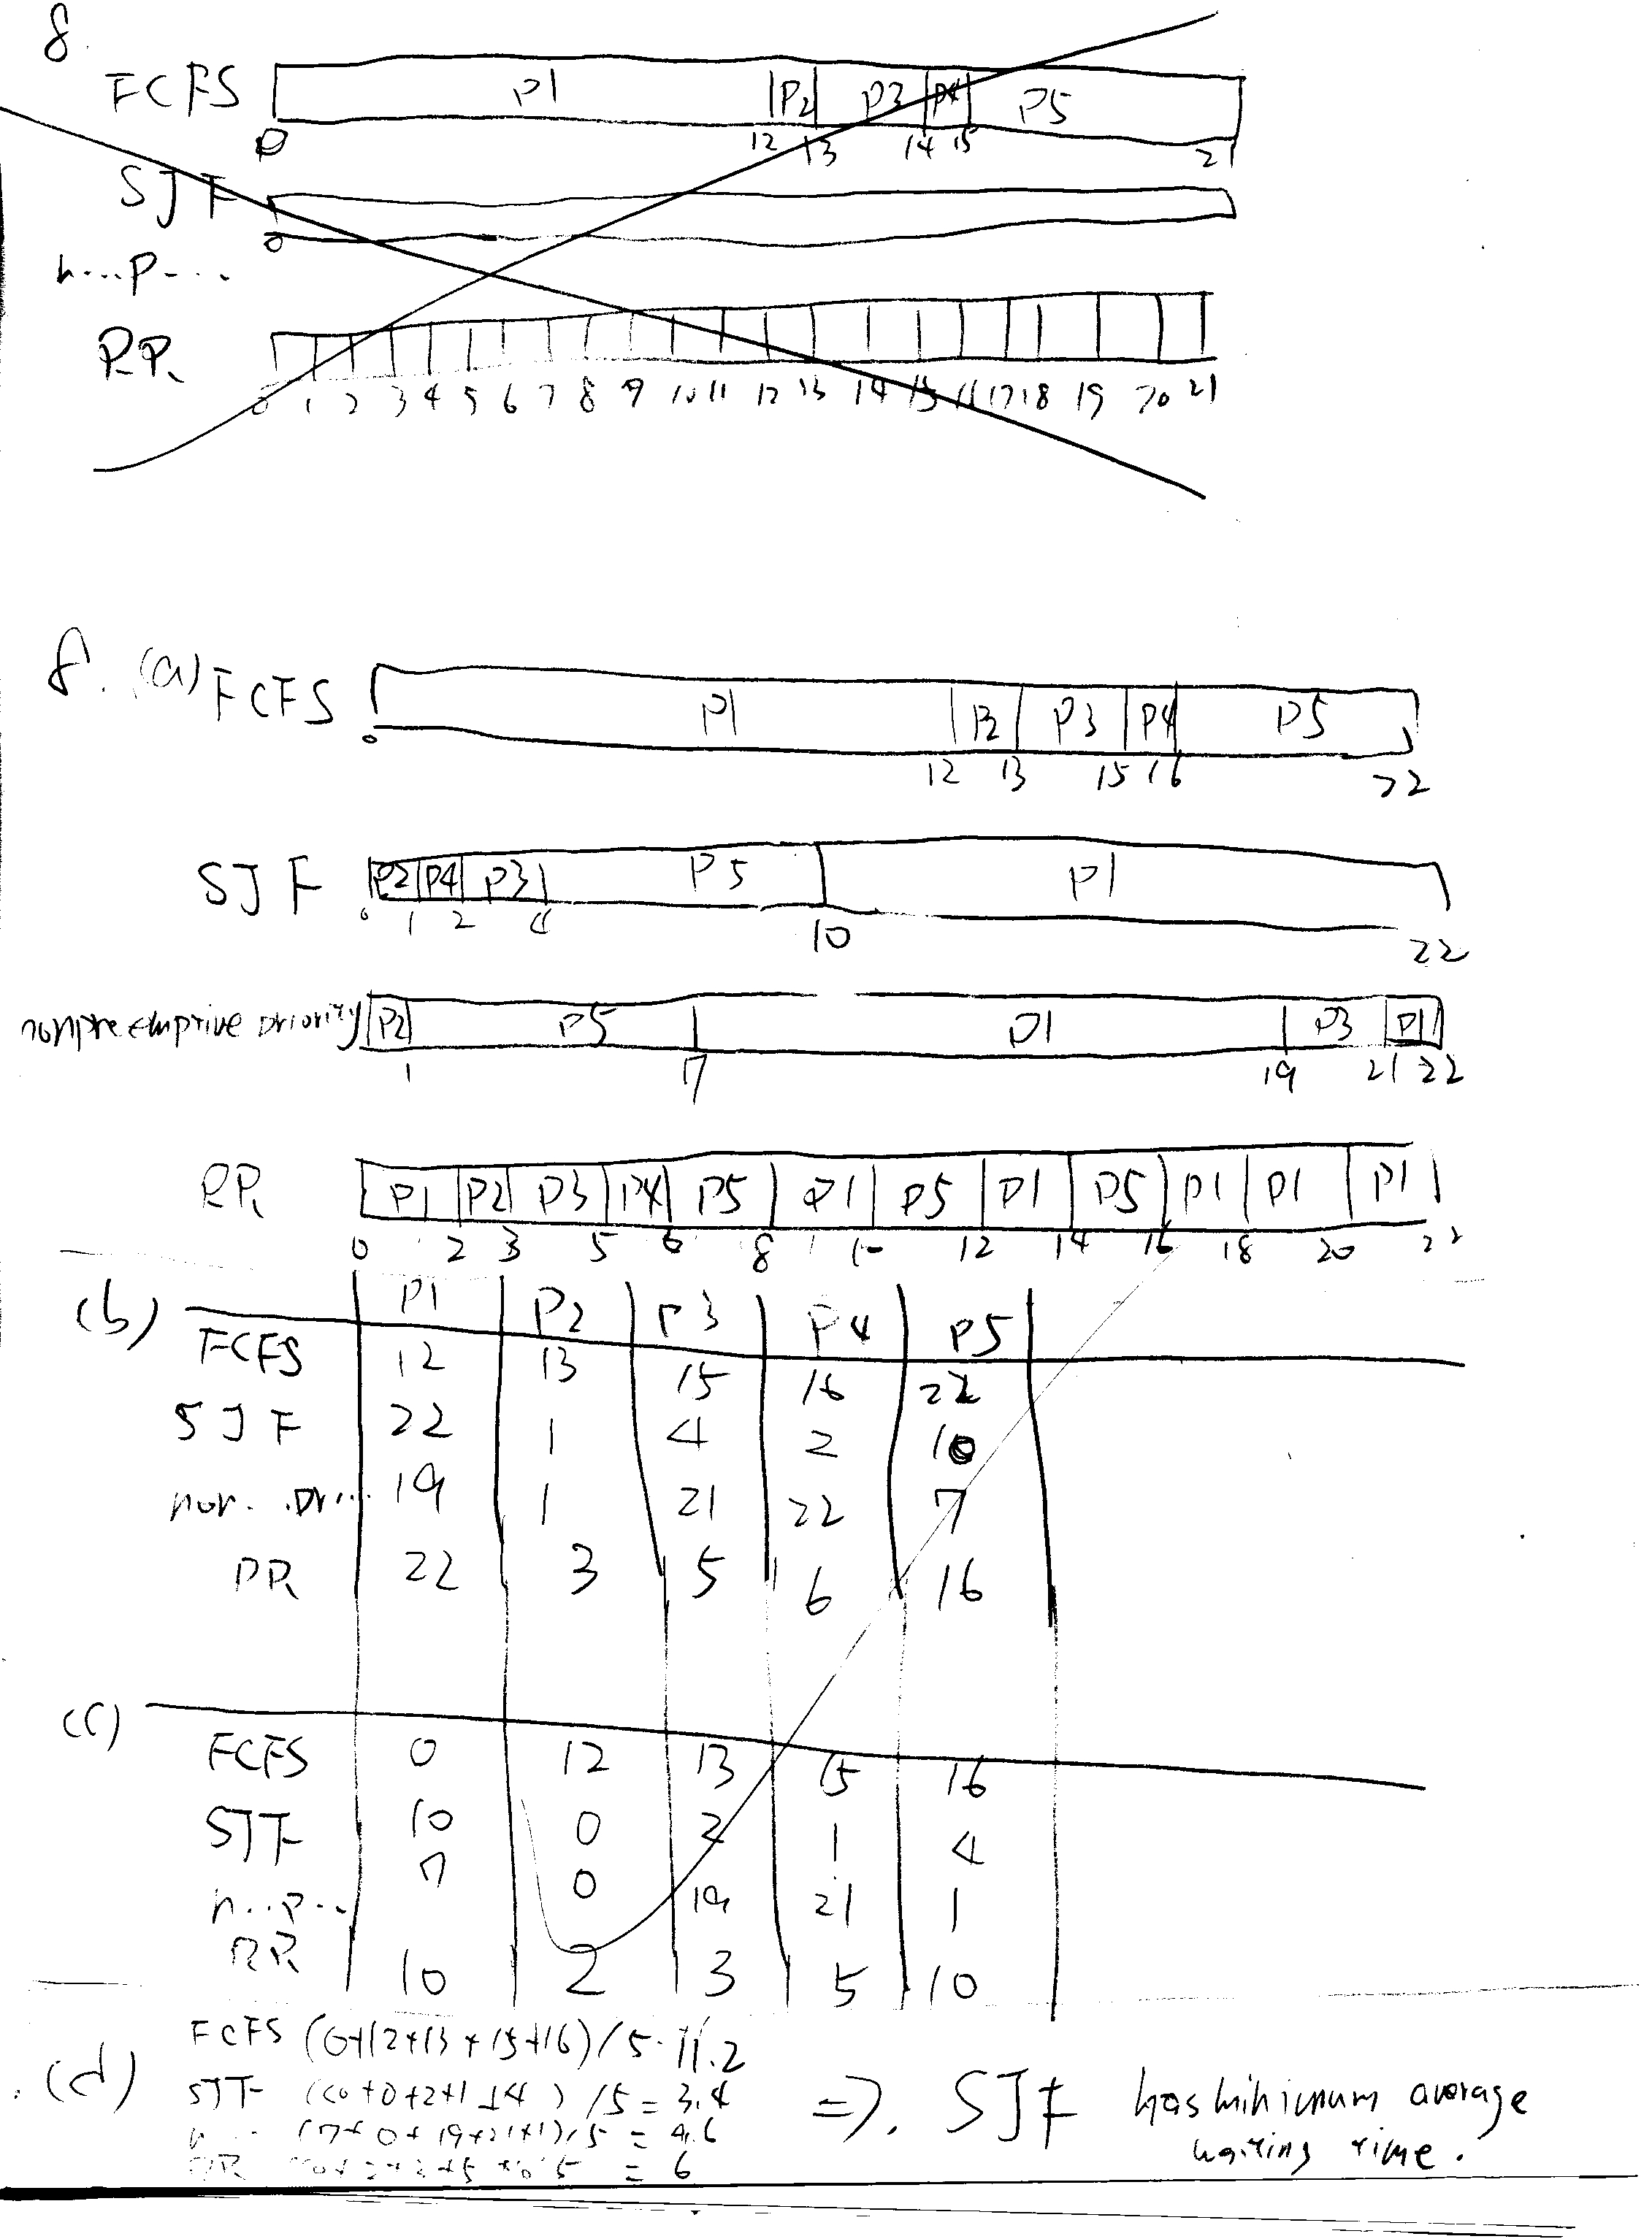 8.
FCFS P1 P2 P3 P4 P5
0 12 13 14 15 21
SJF
0
n...p....
RR
0 1 2 3 4 5 6 7 8 9 10 11 12 13 14 15 16 17 18 19 20 21
8. (a) FCFS P1 P2 P3 P4 P5
0 12 13 15 16 22
SJF P2 P4 P3 P5 P1
0 1 2 4 10 22
nonpreemptive priority P2 P5 P1 P3 P1
1 7 19 21 22
RR P1 P2 P3 P4 P5 P1 P5 P1 P5 P1 P1 P1
0 2 3 5 6 8 10 12 14 16 18 20 22
(b) P1 P2 P3 P4 P5
FCFS 12 13 15 16 22
SJF 22 1 4 2 10
non. .pr... 19 1 21 22 7
RR 22 3 5 6 16
(c)
FCFS 0 12 13 15 16
SJF 10 0 2 1 4
n..p.. 7 0 19 21 1
RR 10 2 3 5 10
(d) FCFS (0+12+13+15+16)/5=11.2
SJF (10+0+2+1+4)/5=3.4 => SJF has minimum average
n... (7+0+19+21+1)/5 = 9.6 waiting time.
RR = 6